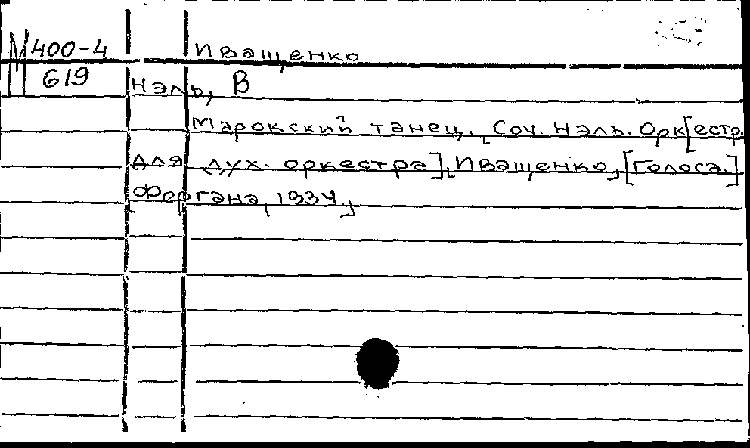 М 400-4 Иващенко
619 Нэль, В
Марокский танец. [Соч. Нэль. Орк[естр.
для дух. оркестра], Иващенко, [Голоса.]
[Фергана, 1934.]